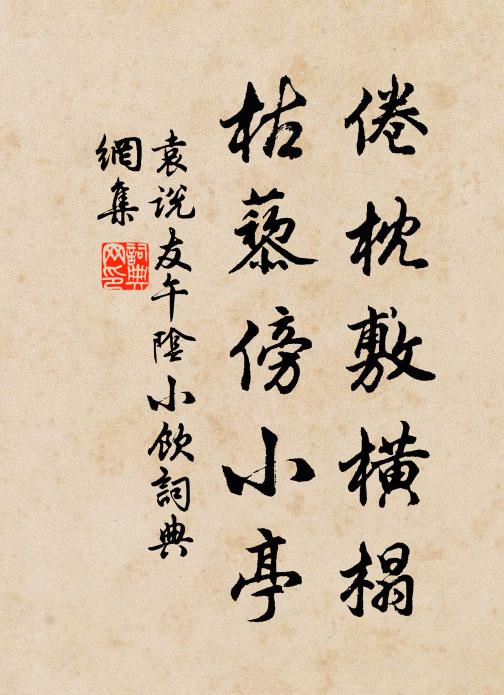 倦枕敷横榻
枯藜傍小亭
袁説友午陰小飲詞典
網集
詞典網印